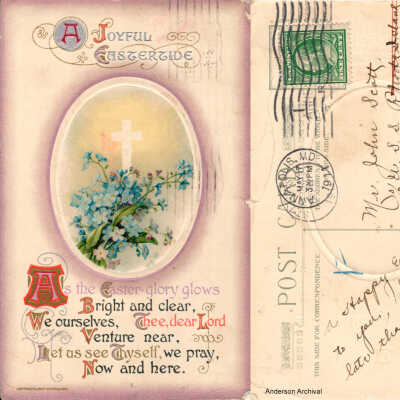 A JOYFUL
EASTERTIDE
As the Easter-glory glows
Bright and clear,
We ourselves, Thee, dear Lord
Venture near,
Let us see Thyself, we pray,
Now and here.
ONE CENT
ANNAPOLIS, MD.
1914
POST CA
THIS SIDE FOR CORRESPONDENCE
Mr. John Scott
U.S.S.
Happy E
to you,
late tha
Anderson Archival